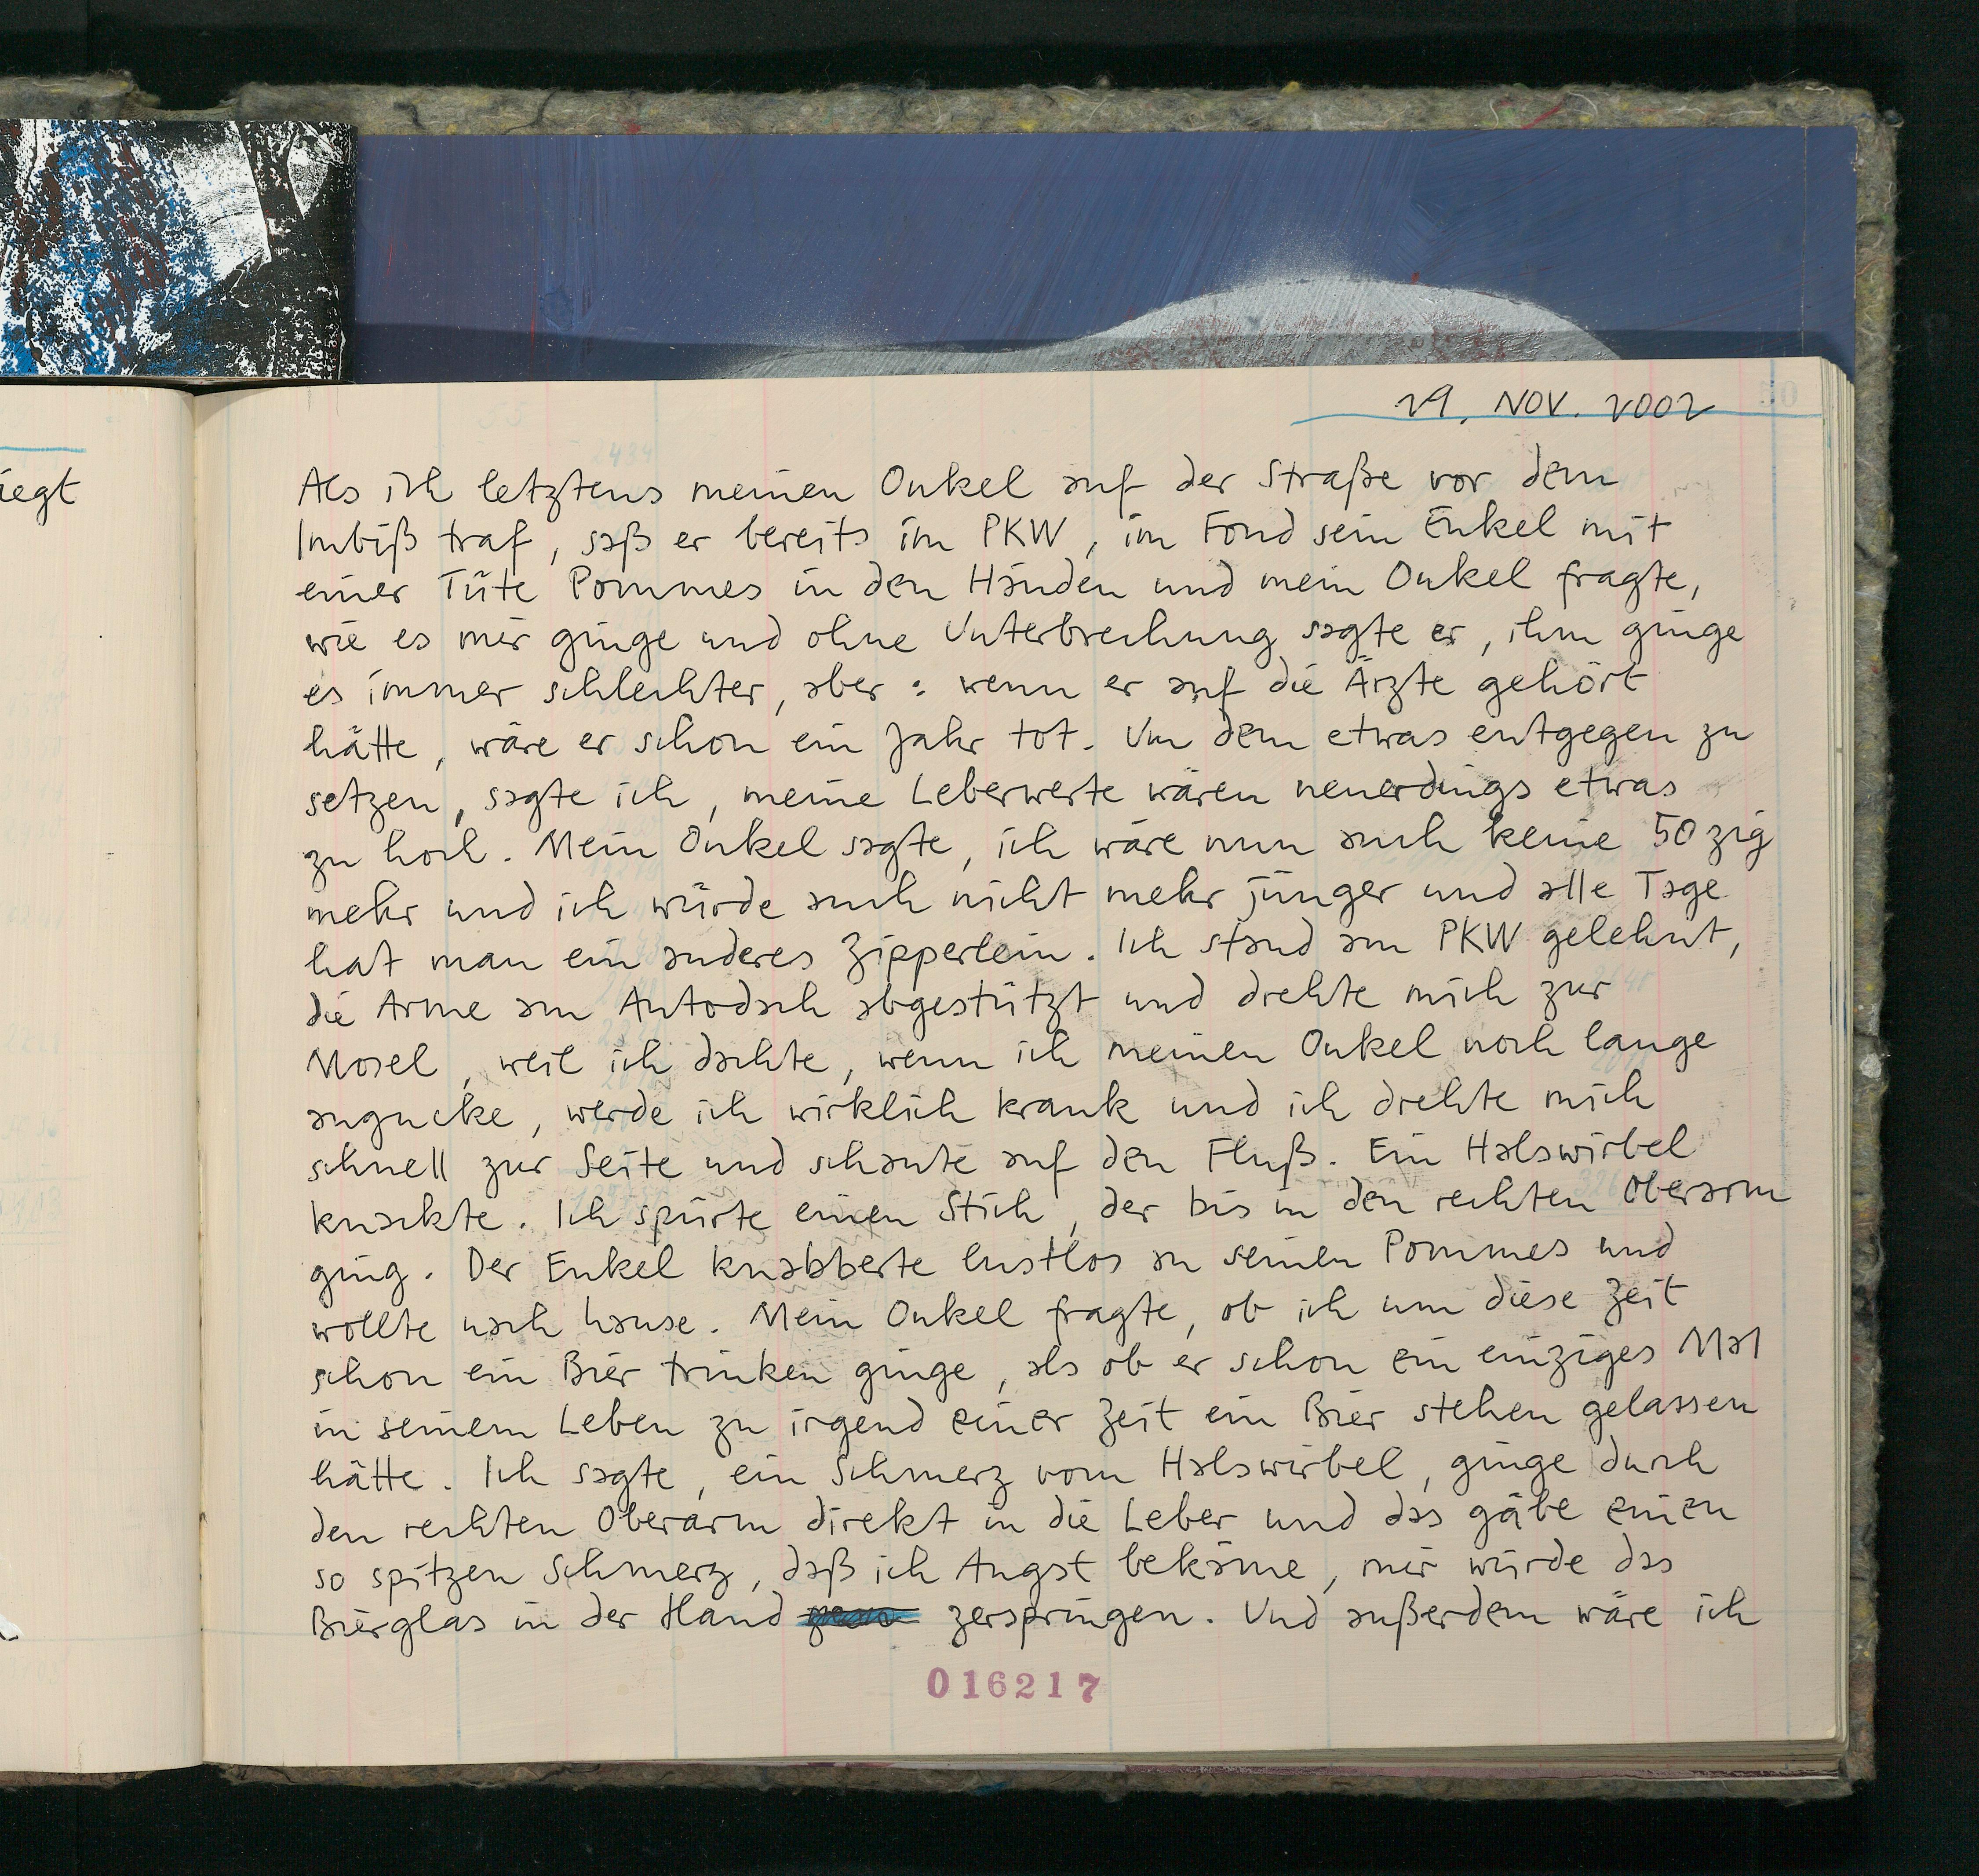 29. NOV. 2002
iegt
Als ich letztens meinen Onkel auf der Straße vor dem
Imbiß traf, saß er bereits im PKW, im Fond sein Enkel mit
einer Tüte Pommes in den Händen und mein Onkel fragte,
wie es mir ginge und ohne Unterbrechung sagte er, ihm ginge
es immer schlechter, aber: wenn er auf die Ärzte gehört
hätte, wäre er schon ein Jahr tot. Um dem etwas entgegen zu
setzen, sagte ich, meine Leberwerte wären neuerdings etwas
zu hoch. Mein Onkel sagte, ich wäre nun auch keine 50zig
mehr und ich würde auch nicht mehr jünger und alle Tage
hat man ein anderes Zipperlein. Ich stand am PKW gelehnt,
die Arme am Autodach abgestützt und drehte mich zur
Mosel, weil ich dachte, wenn ich meinen Onkel noch lange
angucke, werde ich wirklich krank und ich drehte mich
schnell zur Seite und schaute auf den Fluß. Ein Halswirbel
knackte. Ich spürte einen Stich, der bis in den rechten Oberarm
ging. Der Enkel knabberte lustlos an seinen Pommes und
wollte nach hause. Mein Onkel fragte, ob ich um diese Zeit
schon ein Bier trinken ginge, als ob er schon ein einziges Mal
in seinem Leben zu irgend einer Zeit ein Bier stehen gelassen
hätte. Ich sagte, ein Schmerz vom Halswirbel, ginge durch
den rechten Oberarm direkt in die Leber und das gäbe einen
so spitzen Schmerz, daß ich Angst bekäme, mir würde das
Bierglas in der Hand zerspringen. Und außerdem wäre ich
016217